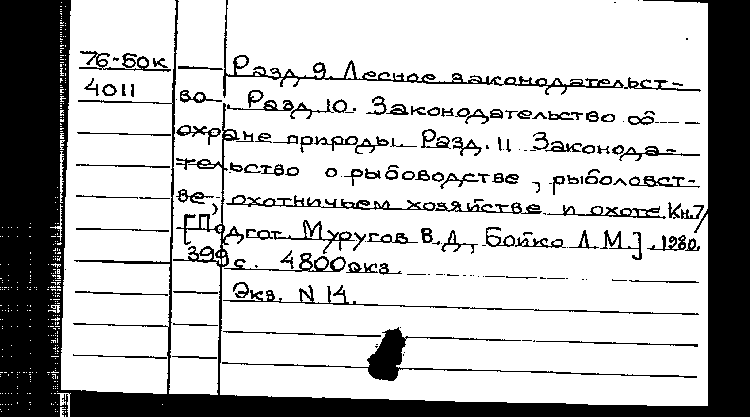 76-50к
4011
Разд 9. Лесное законодательст-
во. Разд 10. Законодательство об
охране природы. Разд. 11 Законода-
тельство о рыбоводстве, рыболовст-
ве, охотничьем хозяйстве и охоте. Кн. 7/
[Подгот. Муругов В.Д., Бойко Л.М.]. 1980.
399 с. 4800экз.
Экз. N 14.